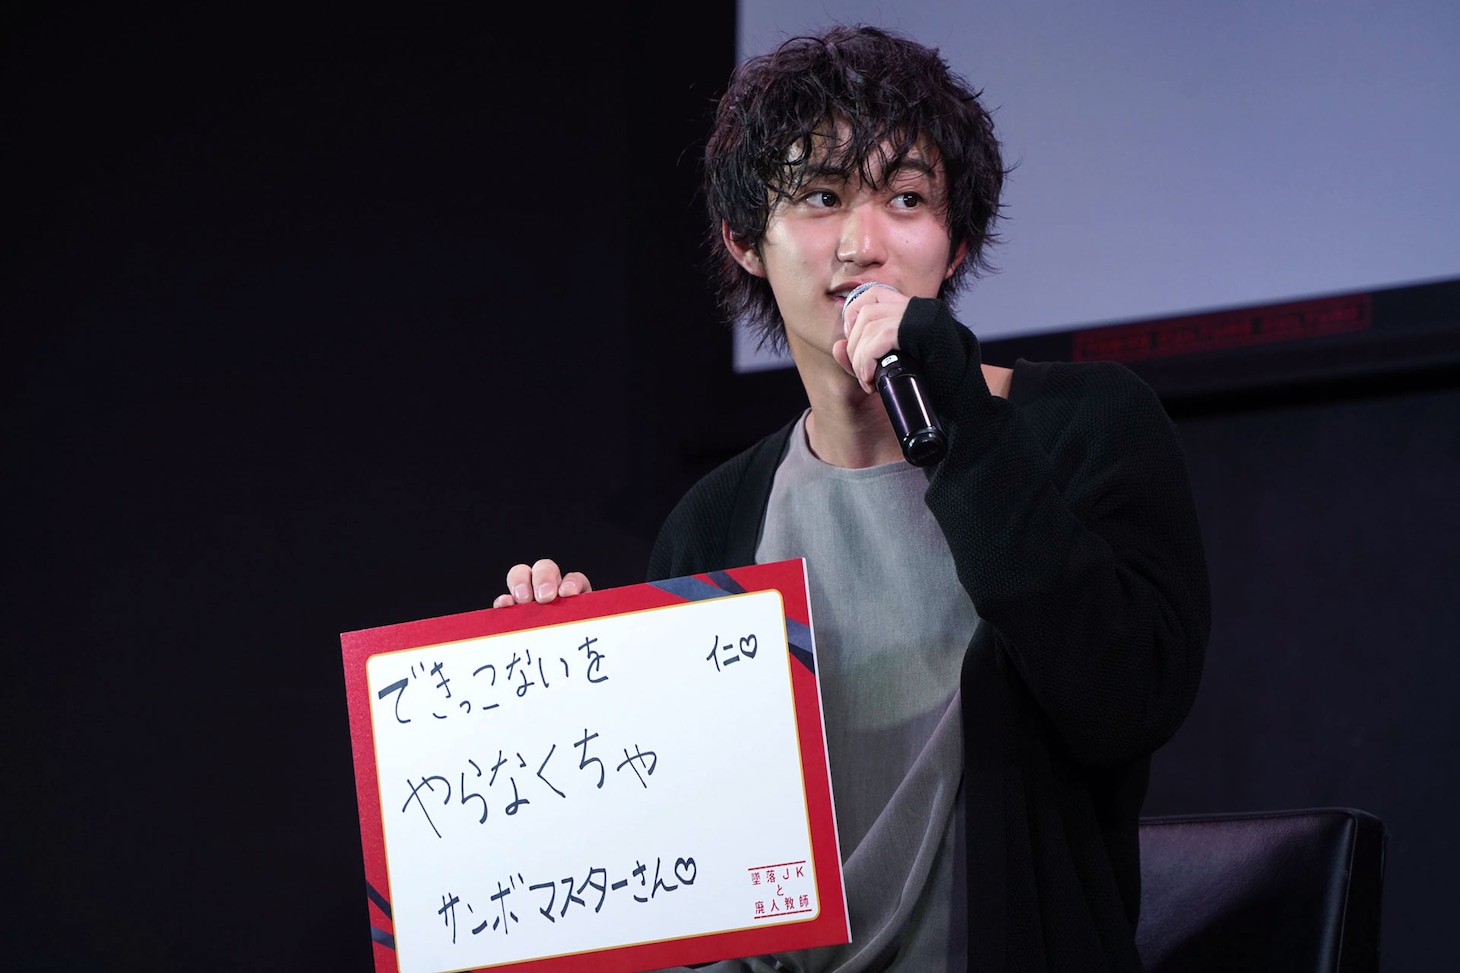 できっこないを
仁♡
やらなくちゃ
サンボマスターさん♡
墜落JK
と
廃人教師